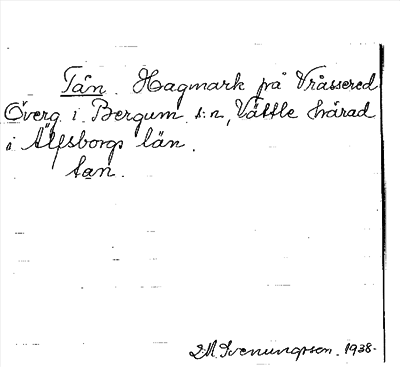 Tån. Hagmark på Vråssered
Överg. i Bergum s:n, Vättle härad
i Älfsborgs län.
tan.
M. Svenungsson. 1938.